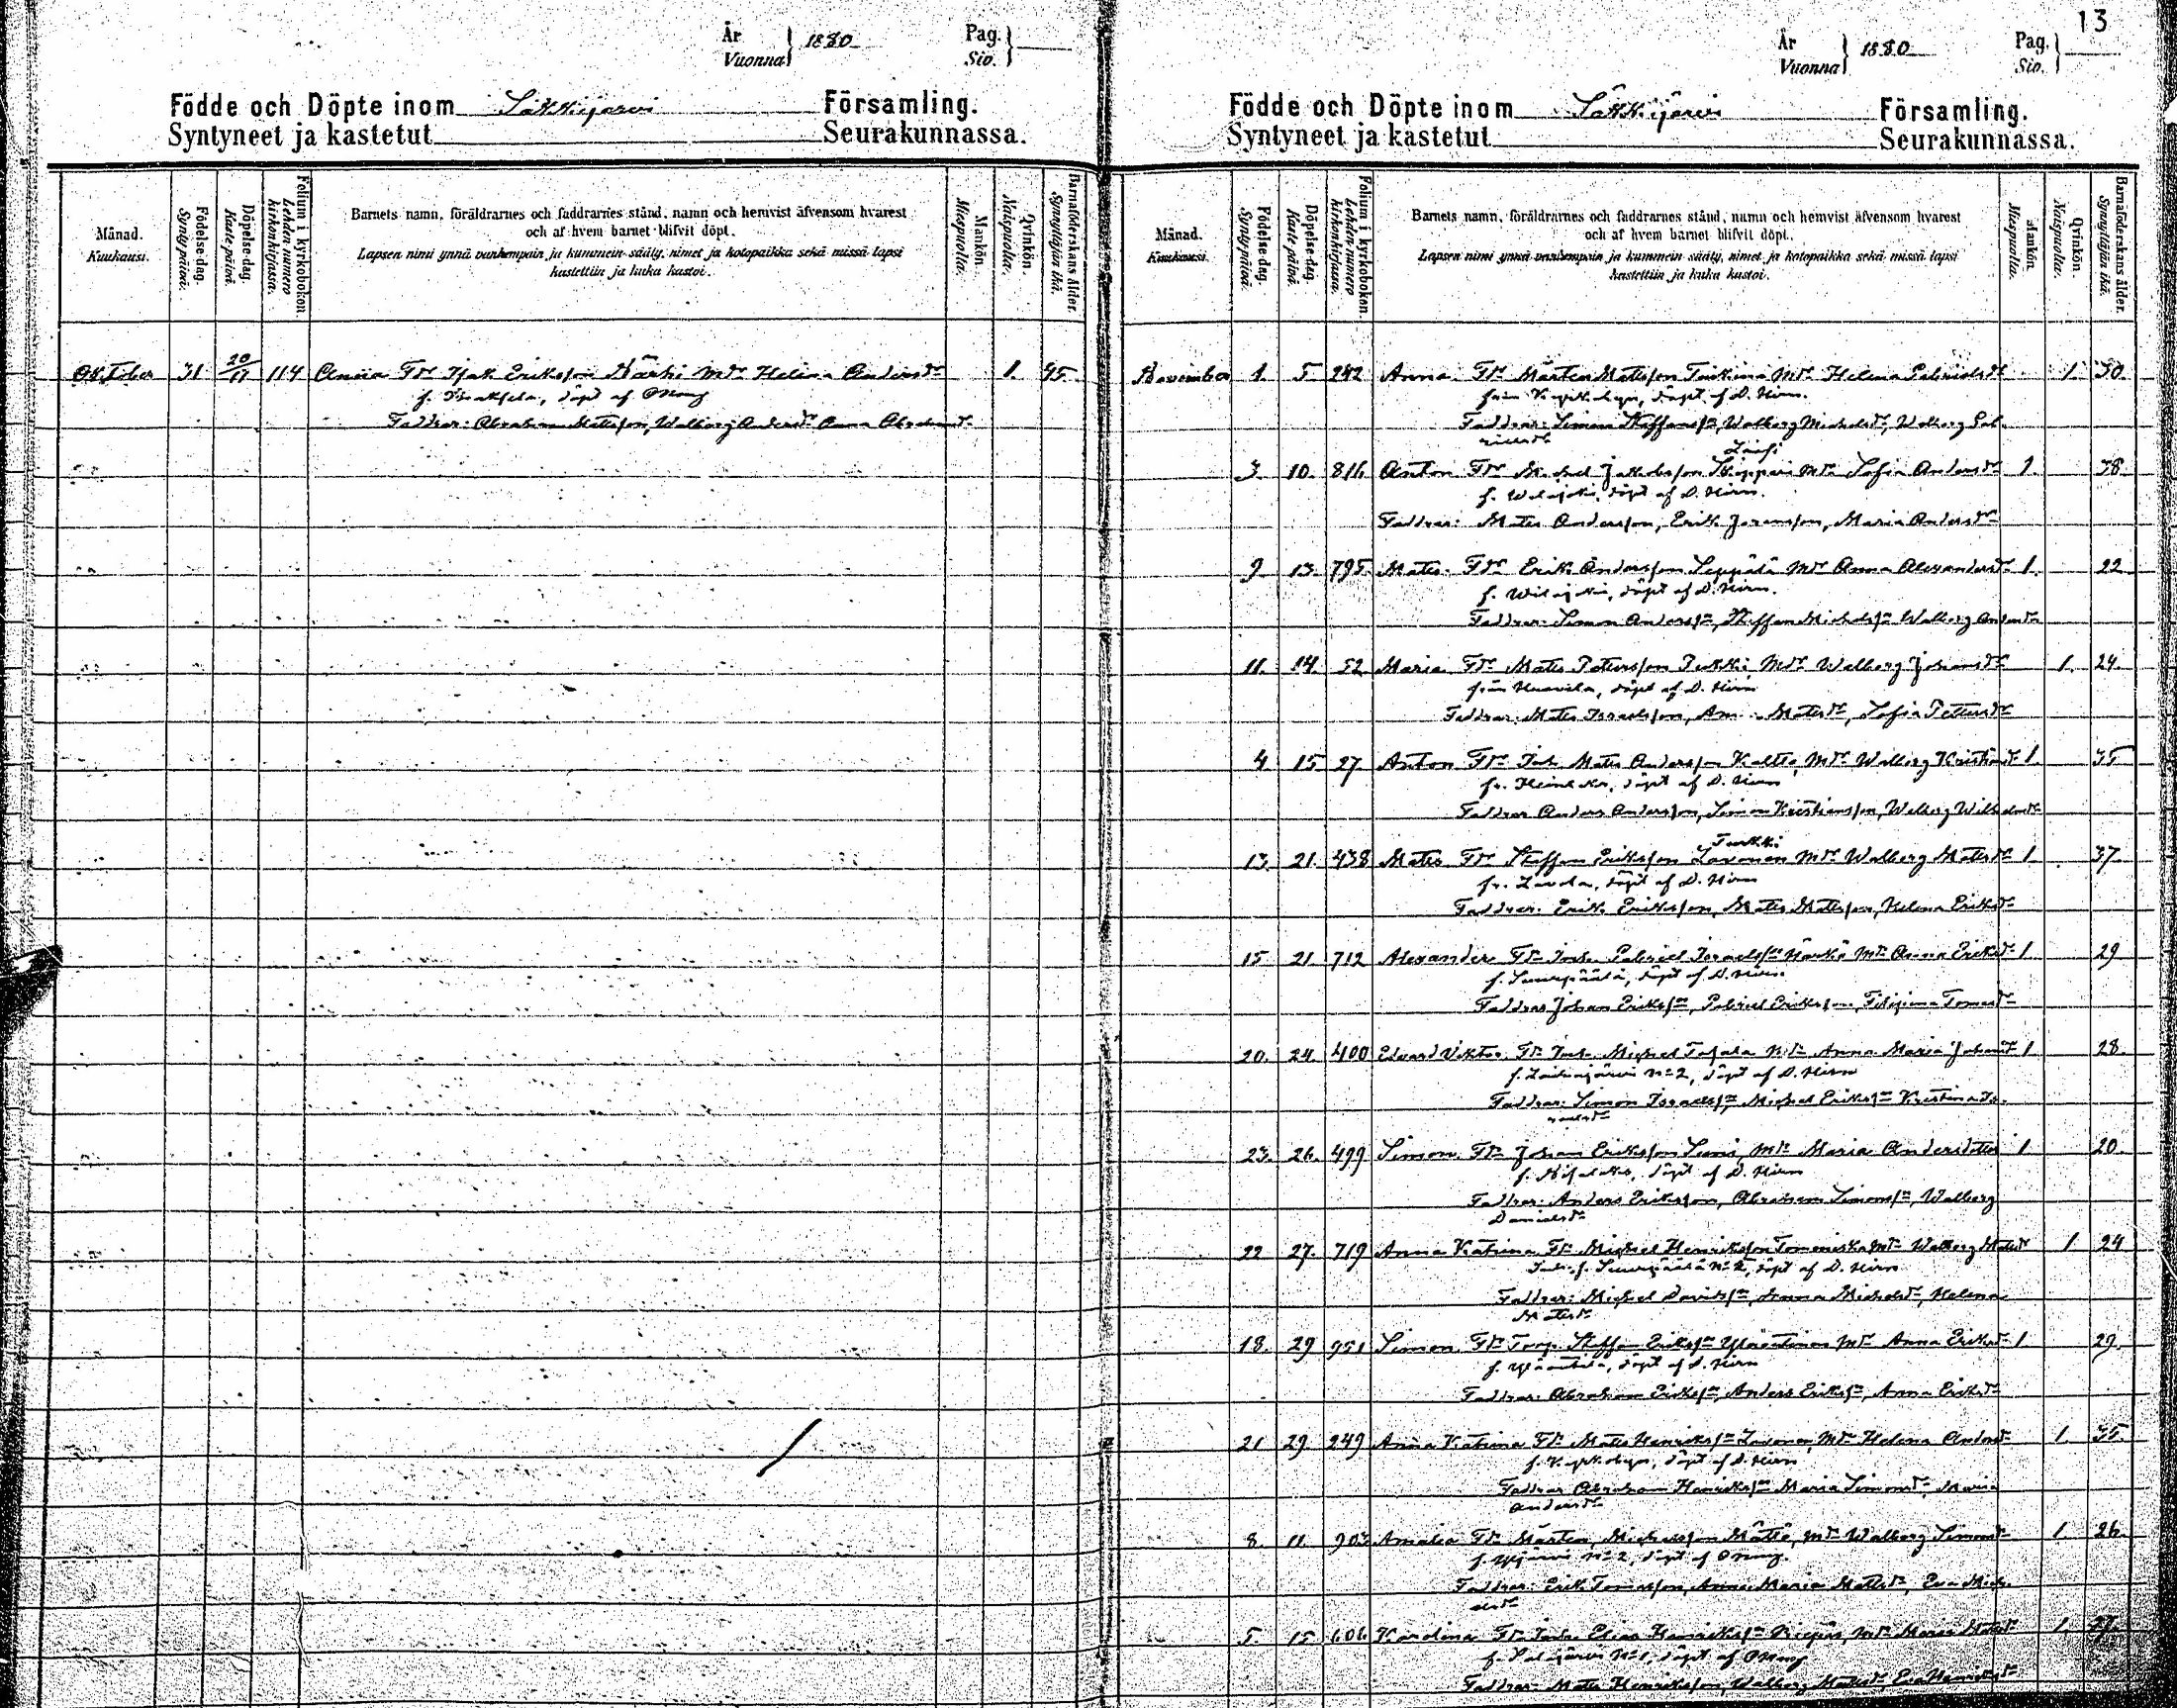 År
Vuonna } 1880
Pag.
Sio. }
Födde och Döpte inom Säkkijärvi Församling.
Syntyneet ja kastetut Seurakunnassa.
Månad.
Kuukausi.
Födelse-dag.
Syntypäivä.
Döpelse-dag.
Kastepäivä.
Folium i kyrkoboken.
Lehden numero
kirkonkirjassa.
Barnets namn, föräldrarnes och faddrarnes stånd, namn och hemvist äfvensom hvarest
och af hvem barnet blifvit döpt.
Lapsen nimi ynnä vanhempain ja kummein sääty, nimet ja kotopaikka sekä missä lapsi
kastettiin ja kuka kastoi.
Mankön.
Miespuolia.
Qvinkön.
Naispuolia.
Barnaföderskans ålder.
Synnyttäjän ikä.
Oktober 31 20/11 114 Anna Fdr Isak Eriksson Kärki Mdr Helena Andersdr 1. 45.
Faddrar: Abraham Mattsson, Walborg Andersdr Anna Abrahamsdr
13
År
Vuonna } 1880
Pag.
Sio. }
Födde och Döpte inom Säkkijärvi Församling.
Syntyneet ja kastetut Seurakunnassa.
Månad.
Kuukausi.
Födelse-dag.
Syntypäivä.
Döpelse-dag.
Kastepäivä.
Folium i kyrkoboken.
Lehden numero
kirkonkirjassa.
Barnets namn, föräldrarnes och faddrarnes stånd, namn och hemvist äfvensom hvarest
och af hvem barnet blifvit döpt.
Lapsen nimi ynnä vanhempain ja kummein sääty, nimet ja kotopaikka sekä missä lapsi
kastettiin ja kuka kastoi.
Mankön.
Miespuolia.
Qvinkön.
Naispuolia.
Barnaföderskans ålder.
Synnyttäjän ikä.
November 1. 5. 242 Anna Fdr Mårten Mattsson Mdr Helena 1. 30.
från Kyrkobyn, döpt af D. Hirn.
Faddrar: Simon Staffanssn, Walborg Michelsdr, Walborg Gab-
rielsdr
3. 10. 816 Anton Fdr Michel Jakobsson Mdr Sofia Andersdr 1. 38
f. Wilajoki, döpt af D. Hirn.
Faddrar: Mats Andersson, Erik Göransson, Maria Andersdr
9. 13. 795 Mats Fdr Erik Andersson Seppälä Mdr Anna Alexandersdr 1. 22
f. Wilajoki, döpt af D. Hirn.
Faddrar: Simon Anderssn, Staffan Michelssn Walborg Andersdr
11. 14. 52 Maria Fdr Mats Petersson Pukki, Mdr Walborg Johansdr 1. 24.
från döpt af D. Hirn
Faddrar: Mats Israelsson, Anna Matsdr, Sofia Pettersdr
4. 15 27. Anton Fdr Mats Andersson Mdr Walborg Kristiansdr 1. 35
döpt af D. Hirn
Faddrar Anders Andersson, Simon Kristiansson, Walborg Wilhelmsdr
Turkki
13. 21. 438 Mats Fdr Staffan Eriksson Lavonen Mdr Walborg Matsdr 1. 37.
döpt af D. Hirn
Faddrar: Erik Eriksson, Mats Mattsson, Helena Eriksdr
15 21 712 Alexander Fdr Gabriel Israelssn Härkä Mdr Anna Eriksdr 1 29
f. Suurpäälä, döpt af D. Hirn.
Faddrar Johan Erikssn, Gabriel Eriksson, Filippina Tomasdr
20. 24. 400 Edvard Viktor Fdr Michel Mdr Anna Maria Johansdr 1 28.
No 2, döpt af D. Hirn
Faddrar: Simon Israelssn, Michel Erikssn Kristina Is-
raelsdr
23. 26. 499 Simon Fdr Johan Eriksson Mdr Maria Andersdotter 1 20.
döpt af D. Hirn
Faddrar: Anders Eriksson, Abraham Simonssn, Walborg
Danielsdr
22 27. 719 Anna Katrina Fdr Michel Henriksson Mdr Walborg Matsdr 1 24
f. Suurpäälä No 2, döpt af D. Hirn
Faddrar: Michel Davidssn, Anna Michelsdr, Helena
Matsdr
18. 29 951 Simon Fdr Torp. Staffan Erikssn Mdr Anna Eriksdr 1 29.
döpt af D. Hirn
Faddrar: Abraham Erikssn, Anders Erikssn, Anna Eriksdr
21 29. 249 Anna Katrina Fdr Mats Henrikssn Lavonen, Mdr Helena Andersdr 1. 35.
f. Kyrkobyn, döpt af D. Hirn
Faddrar Abraham Henrikssn Maria Simonsdr, Maria
Andersdr
8. 11. 903 Amalia Fdr Mårten Michelsson Mättö, Mdr Walborg Simonsdr 1 26.
No 2, döpt af
Faddrar: Erik Tomasson, Anna Maria Matsdr, Eva Mich-
elsdr
5 15 606 Karolina Fdr Elias Henrikssn Mdr Maria Matsdr 1 27.
No 1, döpt af
Faddrar: Mats Henriksson, Walborg Matsdr, Eva Henriksdr